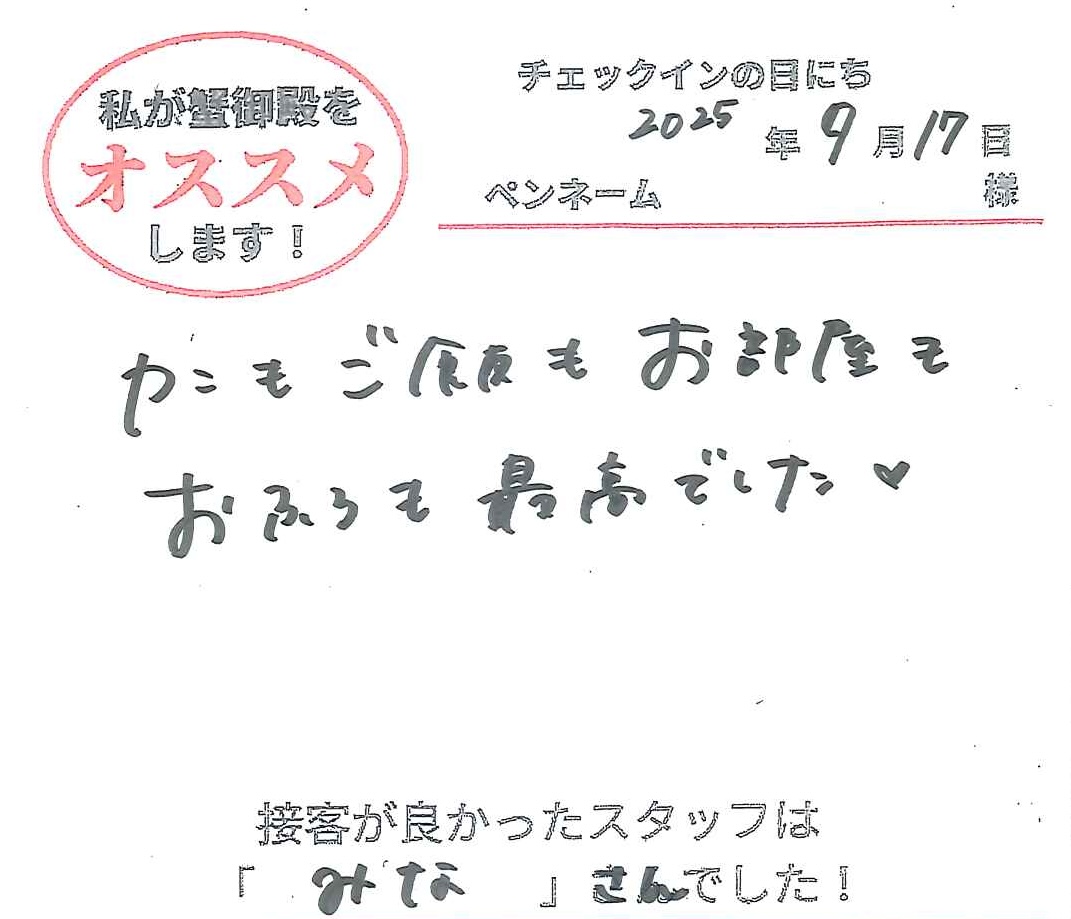 私が蟹御殿を
オススメ
します！
チェックインの日にち
2025年9月17日
ペンネーム 様
カニもご飯もお部屋も
おふろも最高でした♥
接客が良かったスタッフは
「 みな 」さんでした！